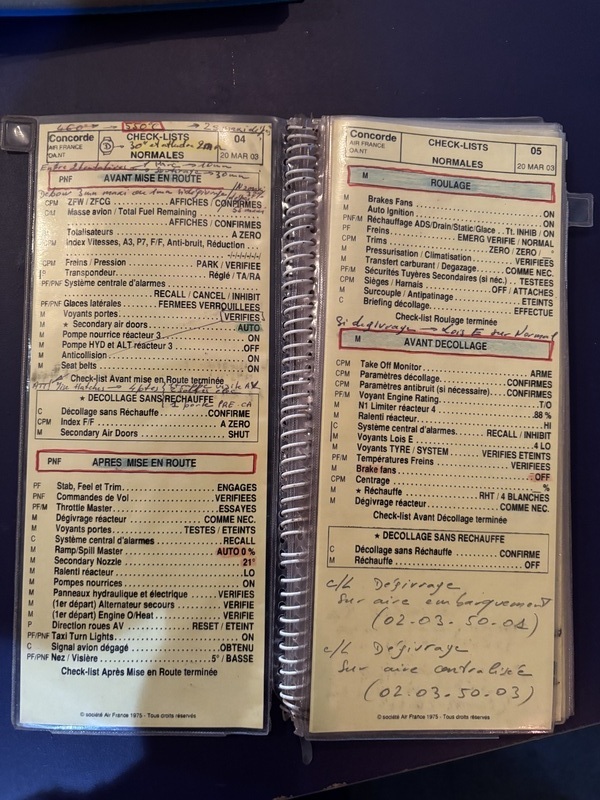 550°C
Concorde
AIR FRANCE
OA.NT
CHECK-LISTS
NORMALES
04
20 MAR 03
PNF AVANT MISE EN ROUTE
CPM ZFW / ZFCG AFFICHES / CONFIRMES
C/M Masse avion / Total Fuel Remaining
AFFICHES / CONFIRMES
Totalisateurs A ZERO
CPM Index Vitesses, A3, P7, F/F, Anti-bruit, Réduction
CPM Freins / Pression PARK / VERIFIEE
Transpondeur Réglé / TA/RA
PF/PNF Système central d'alarmes
RECALL / CANCEL / INHIBIT
PF/PNF Glaces latérales FERMEES VERROUILLEES
M Voyants portes VERIFIES
M ★ Secondary air doors AUTO
M Pompe nourrice réacteur 3 ON
M Pompe HYD et ALT réacteur 3 OFF
M Anticollision ON
M Seat belts ON
Check-list Avant mise en Route terminée
★ DECOLLAGE SANS RECHAUFFE
C Décollage sans Réchauffe CONFIRME
CPM Index F/F A ZERO
M Secondary Air Doors SHUT
PNF APRES MISE EN ROUTE
PF Stab, Feel et Trim ENGAGES
PNF Commandes de Vol VERIFIEES
PF/M Throttle Master ESSAYES
M Dégivrage réacteur COMME NEC.
M Voyants portes TESTES / ETEINTS
C Système central d'alarmes RECALL
M Ramp/Spill Master AUTO 0 %
M Secondary Nozzle 21°
M Ralenti réacteur LO
M Pompes nourrices ON
M Panneaux hydraulique et électrique VERIFIES
M (1er départ) Alternateur secours VERIFIE
M (1er départ) Engine O/Heat VERIFIE
P Direction roues AV RESET / ETEINT
PF/PNF Taxi Turn Lights ON
C Signal avion dégagé OBTENU
PF/PNF Nez / Visière 5° / BASSE
Check-list Après Mise en Route terminée
© société Air France 1975 - Tous droits réservés
Concorde
AIR FRANCE
OA.NT
CHECK-LISTS
NORMALES
05
20 MAR 03
M ROULAGE
M Brakes Fans ON
M Auto Ignition ON
M Réchauffage ADS/Drain/Static/Glace Tt. INHIB / ON
PNF/M Freins EMERG VERIFIE / NORMAL
PF Trims ZERO / ZERO /
CPM Pressurisation / Climatisation VERIFIEES
M Transfert carburant / Degazage COMME NEC.
M Sécurités Tuyères Secondaires (si néc.) TESTEES
PF/M Sièges / Harnais OFF / ATTACHES
C/M Surcouple / Antipatinage ETEINTS
M Briefing décollage EFFECTUE
C
Check-list Roulage terminée
Si dégivrage → Lois E sur Normal
M AVANT DECOLLAGE
CPM Take Off Monitor ARME
CPM Paramètres décollage CONFIRMES
CPM Paramètres antibruit (si nécessaire) CONFIRMES
PF/M Voyant Engine Rating T/O
M N1 Limiter réacteur 4 88 %
M Ralenti réacteur HI
C Système central d'alarmes RECALL / INHIBIT
M Voyants Lois E 4 LO
M Voyants TYRE / SYSTEM VERIFIES ETEINTS
PF/M Températures Freins VERIFIEES
M Brake fans OFF
CPM Centrage %
M ★ Réchauffe RHT / 4 BLANCHES
M Dégivrage réacteur COMME NEC.
Check-list Avant Décollage terminée
★ DECOLLAGE SANS RECHAUFFE
C Décollage sans Réchauffe CONFIRME
M Réchauffe OFF
c/L Dégivrage
sur aire embarquement
(02.03.50.04)
c/L Dégivrage
sur aire centralisée
(02.03.50.03)
© société Air France 1975 - Tous droits réservés